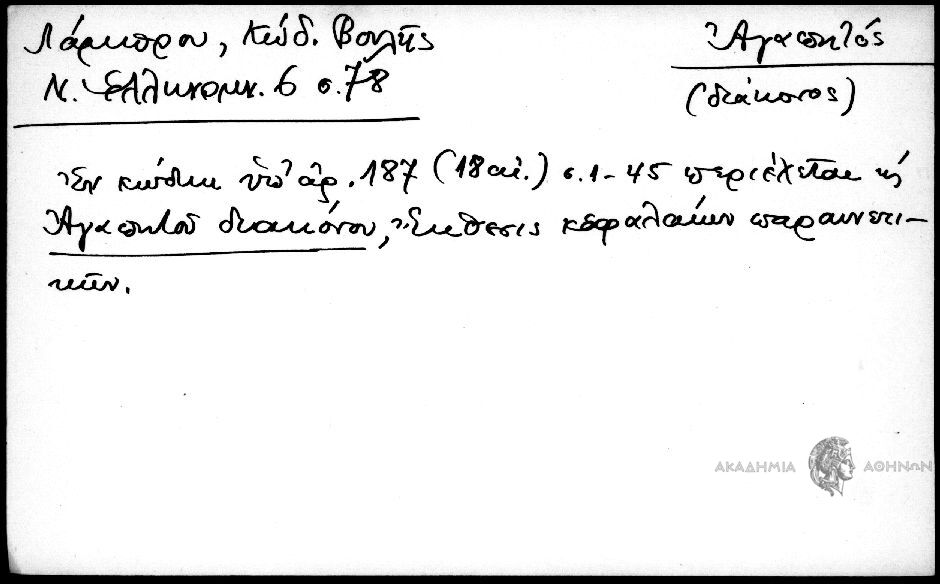 Λάμπρου, Κώδ. Βουλῆς
Ἀγαπητός
Ν. Ἑλληνομν. 6 σ. 78
(διάκονος)
Ἐν κώδικι ὑπ' ἀρ. 187 (18 αἰ.) σ. 1-45 περιέχεται ἡ
Ἀγαπητοῦ διακόνου, Ἔκθεσις κεφαλαίων παραινετι-
κῶν.
ΑΚΑΔΗΜΙΑ ΑΘΗΝΩΝ